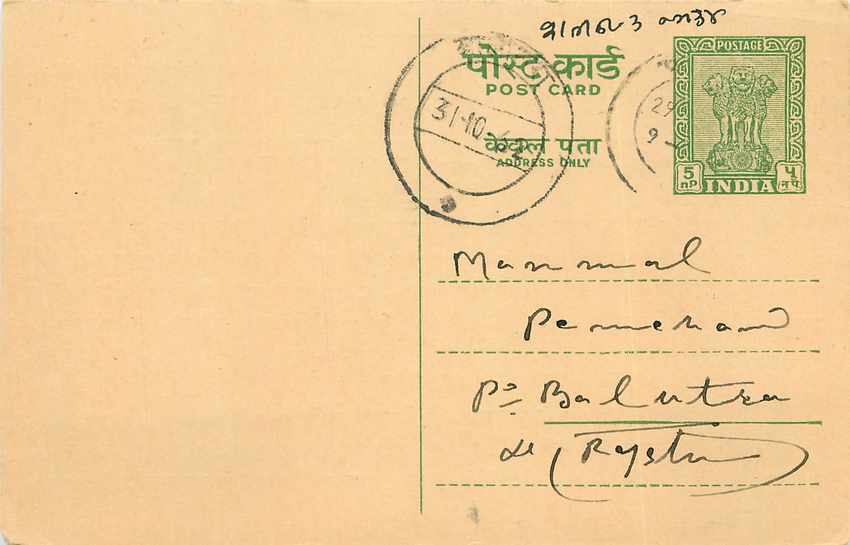 पोस्ट कार्ड
POST CARD
केवल पता
ADDRESS ONLY
POSTAGE
5 nP INDIA ५ नप
31-10
29
9
Manmal
Pemchand
Po Balutra
(Rajsthn)